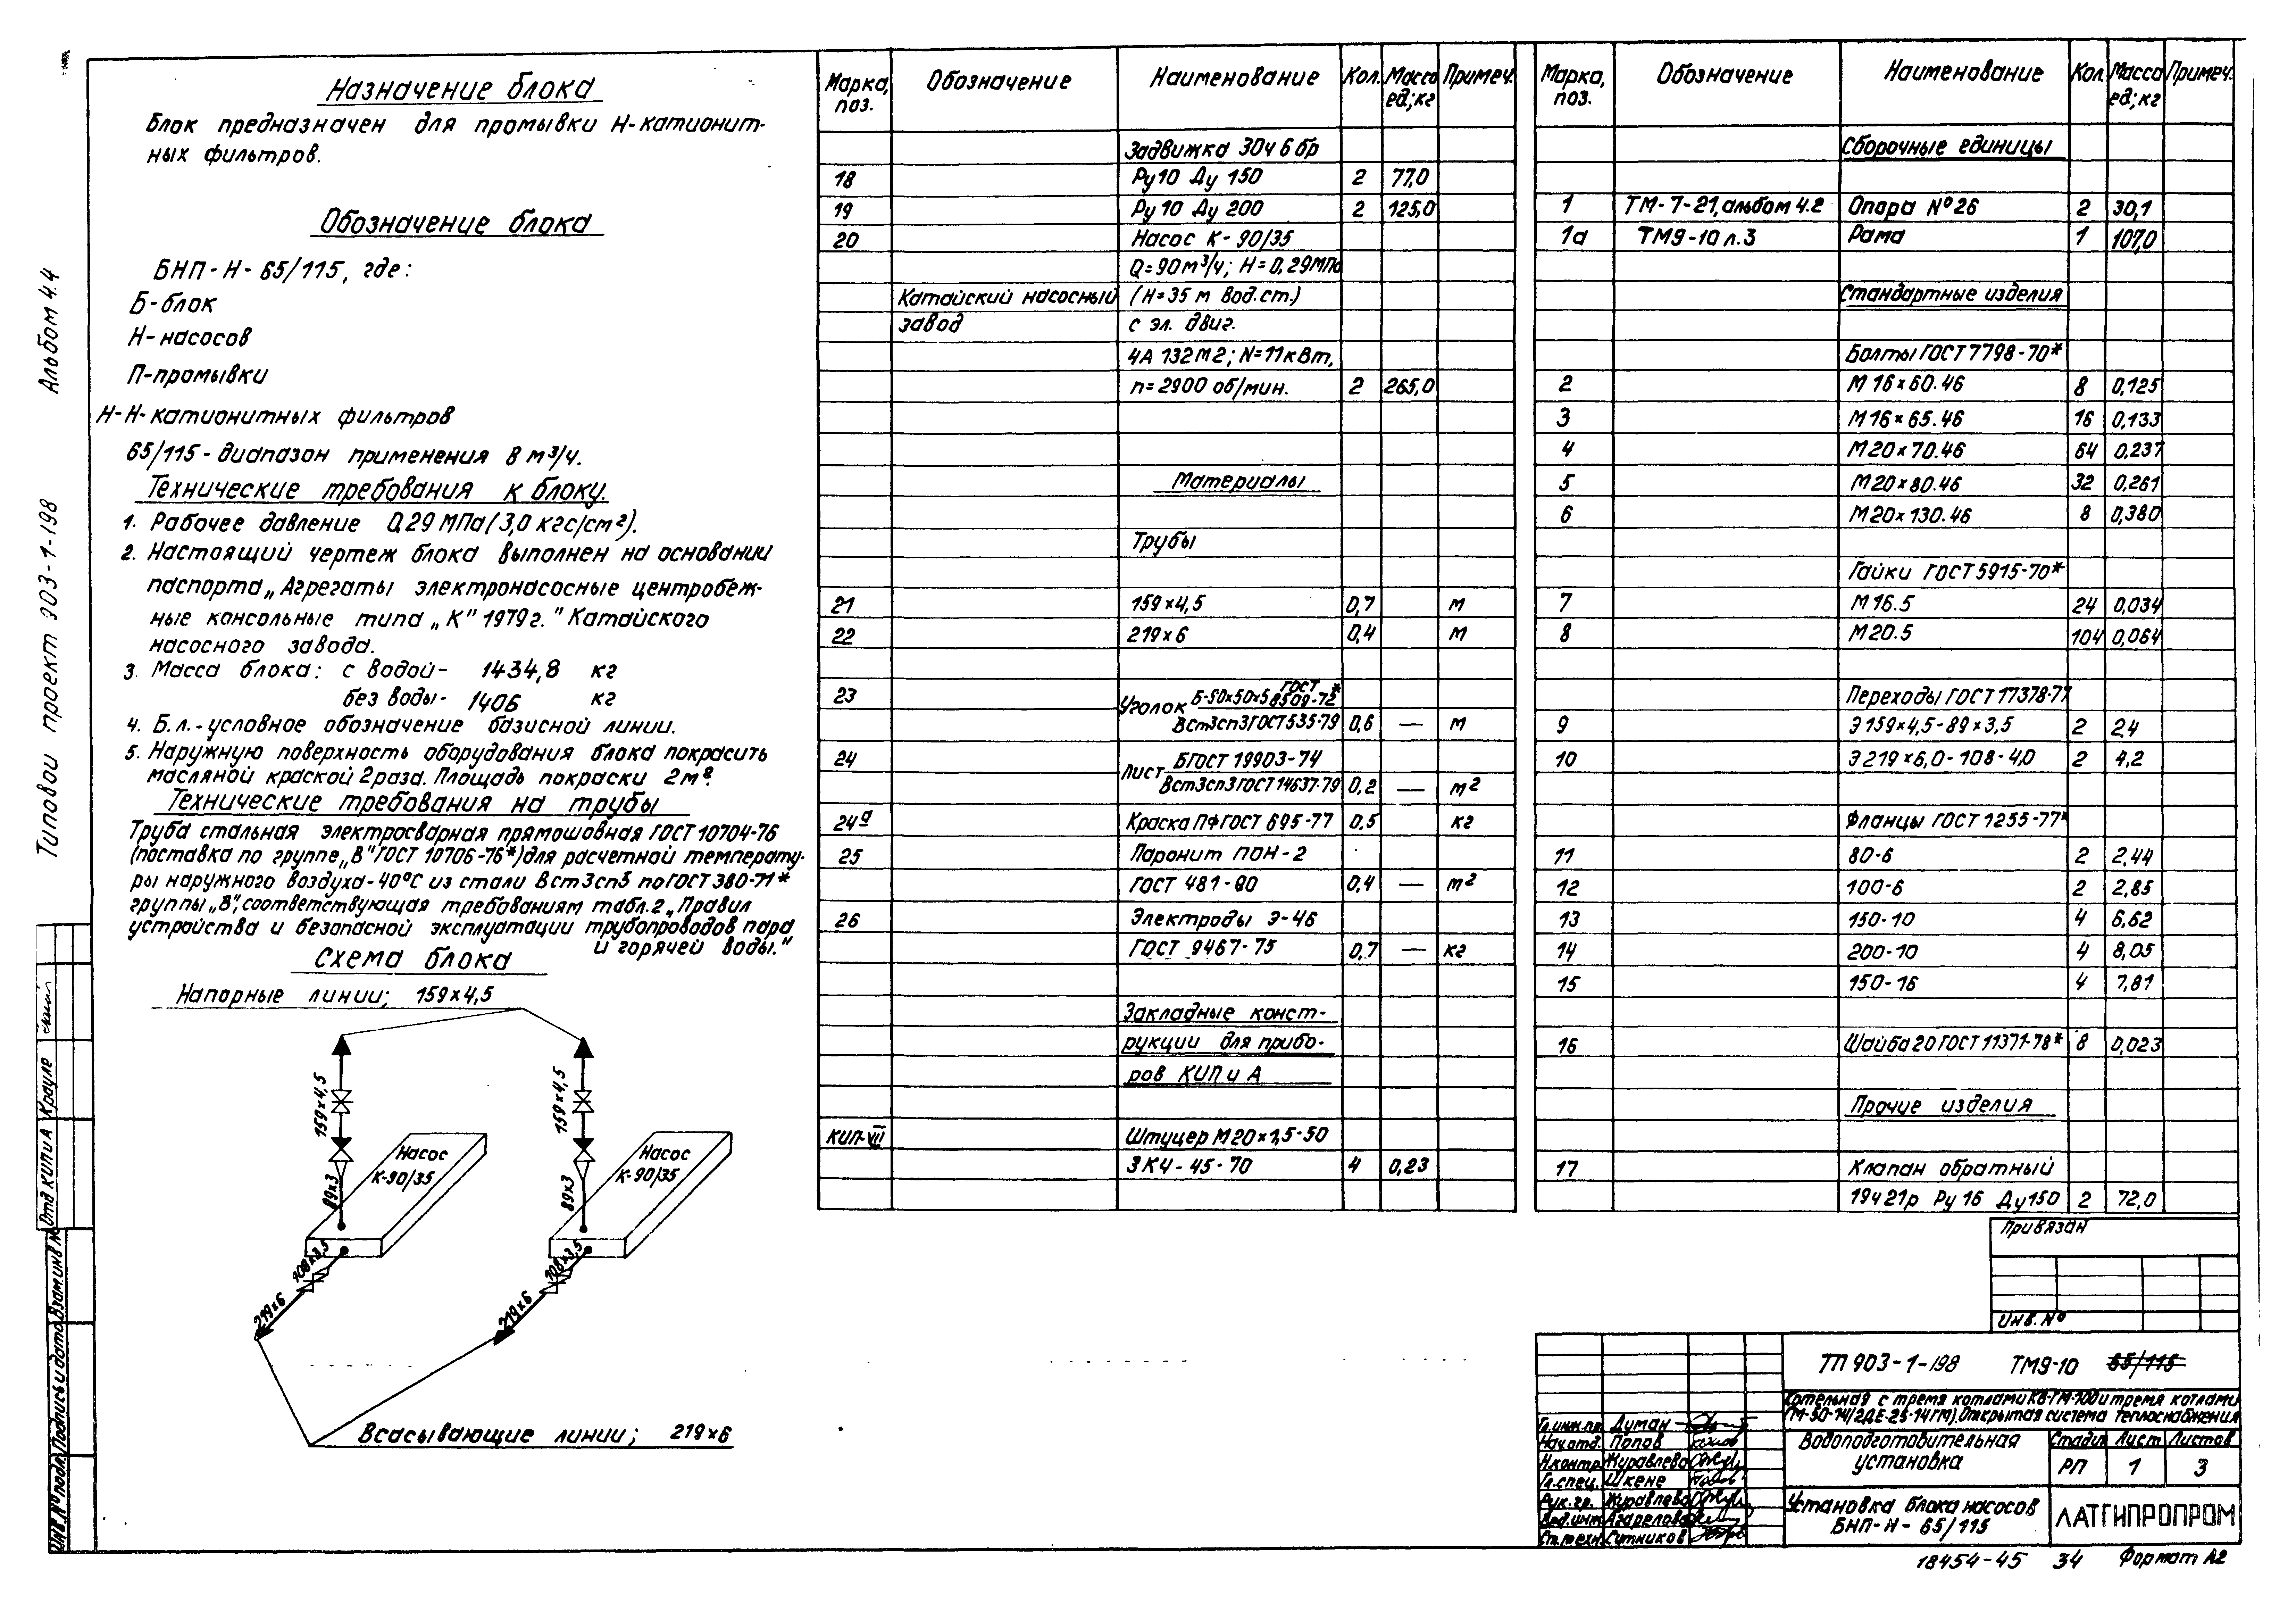 Назначение блока
Блок предназначен для промывки Н-катионит-
ных фильтров.
Обозначение блока
БНП-Н-65/115, где:
Б-блок
Н-насосов
П-промывки
Н-Н-катионитных фильтров
65/115-диапазон применения в м³/ч.
Технические требования к блоку.
1. Рабочее давление 0,29 МПа (3,0 кгс/см²).
2. Настоящий чертеж блока выполнен на основании
паспорта „Агрегаты электронасосные центробеж-
ные консольные типа „К" 1979г." Катайского
насосного завода.
3. Масса блока: с водой- 1434,8 кг
без воды- 1406 кг
4. Б.л.-условное обозначение базисной линии.
5. Наружную поверхность оборудования блока покрасить
масляной краской 2 раза. Площадь покраски 2м².
Технические требования на трубы
Труба стальная электросварная прямошовная ГОСТ 10704-76
(поставка по группе „В" ГОСТ 10706-76*) для расчетной температу-
ры наружного воздуха-40°С из стали Вст3сп5 по ГОСТ 380-71*
группы „В", соответствующая требованиям табл.2 „Правил
устройства и безопасной эксплуатации трубопроводов пара
и горячей воды."
Схема блока
Напорные линии; 159×4,5
159×4,5
159×4,5
Насос
К-90/35
Насос
К-90/35
89×3
89×3
108×3,5
108×3,5
219×6
219×6
Всасывающие линии; 219×6
Марка, поз. Обозначение Наименование Кол. Масса ед;кг Примеч.
Задвижка 30ч6бр
18 Ру10 Ду 150 2 77,0
19 Ру 10 Ду 200 2 125,0
20 Насос К-90/35
Q=90м³/ч; Н=0,29МПа
Катайский насосный (Н=35 м вод.ст.)
завод с эл. двиг.
4А 132М2; N=11кВт,
n=2900 об/мин. 2 265,0
Материалы
Трубы
21 159×4,5 0,7 м
22 219×6 0,4 м
23 Уголок Б-50×50×5 ГОСТ 8509-72*
Вст3сп3ГОСТ535-79 0,6 — м
24 Лист БГОСТ 19903-74
Вст3сп3ГОСТ14637-79 0,2 — м²
24а Краска ПФ ГОСТ 695-77 0,5 кг
25 Паронит ПОН-2
ГОСТ 481-80 0,4 — м²
26 Электроды Э-46
ГОСТ 9467-75 0,7 — кг
Закладные конст-
рукции для прибо-
ров КИП и А
КИП-VII Штуцер М20×1,5-50
ЗК4-45-70 4 0,23
Марка, поз. Обозначение Наименование Кол. Масса ед;кг Примеч.
Сборочные единицы
1 ТМ-7-21,альбом 4.2 Опора №26 2 30,1
1а ТМ9-10 л.3 Рама 1 107,0
Стандартные изделия
Болты ГОСТ 7798-70*
2 М16×60.46 8 0,125
3 М16×65.46 16 0,133
4 М20×70.46 64 0,237
5 М20×80.46 32 0,261
6 М20×130.46 8 0,380
Гайки ГОСТ 5915-70*
7 М16.5 24 0,034
8 М20.5 104 0,064
Переходы ГОСТ 17378-77
9 Э159×4,5-89×3,5 2 2,4
10 Э219×6,0-108-4,0 2 4,2
Фланцы ГОСТ 1255-77*
11 80-6 2 2,44
12 100-6 2 2,85
13 150-10 4 6,62
14 200-10 4 8,05
15 150-16 4 7,81
16 Шайба 20 ГОСТ 11371-78* 8 0,023
Прочие изделия
17 Клапан обратный
19ч21р Ру 16 Ду150 2 72,0
Привязан
Инв.№
ТП 903-1-198 ТМ9-10 65/115
Котельная с тремя котлами КВ-ГМ-100 и тремя котлами
ГМ-50-14/2ДЕ-25-14ГМ). Открытая система теплоснабжения
Водоподготовительная
установка
Стадия Лист Листов
РП 1 3
Установка блока насосов
БНП-Н-65/115
ЛАТГИПРОПРОМ
Гл.инж.пр. Думан
Нач.отд. Попов
Н.контр. Журавлева
Гл.спец. Шкене
Рук.гр. Журавлева
Вед.инж. Агарелова
Ст.техн. Ситников
18454-45 34 Формат А2
Типовой проект 903-1-198 Альбом 4.4
Отд КИП и А Крауле
Взам.инв.№
Подпись и дата
Инв.№ подл.